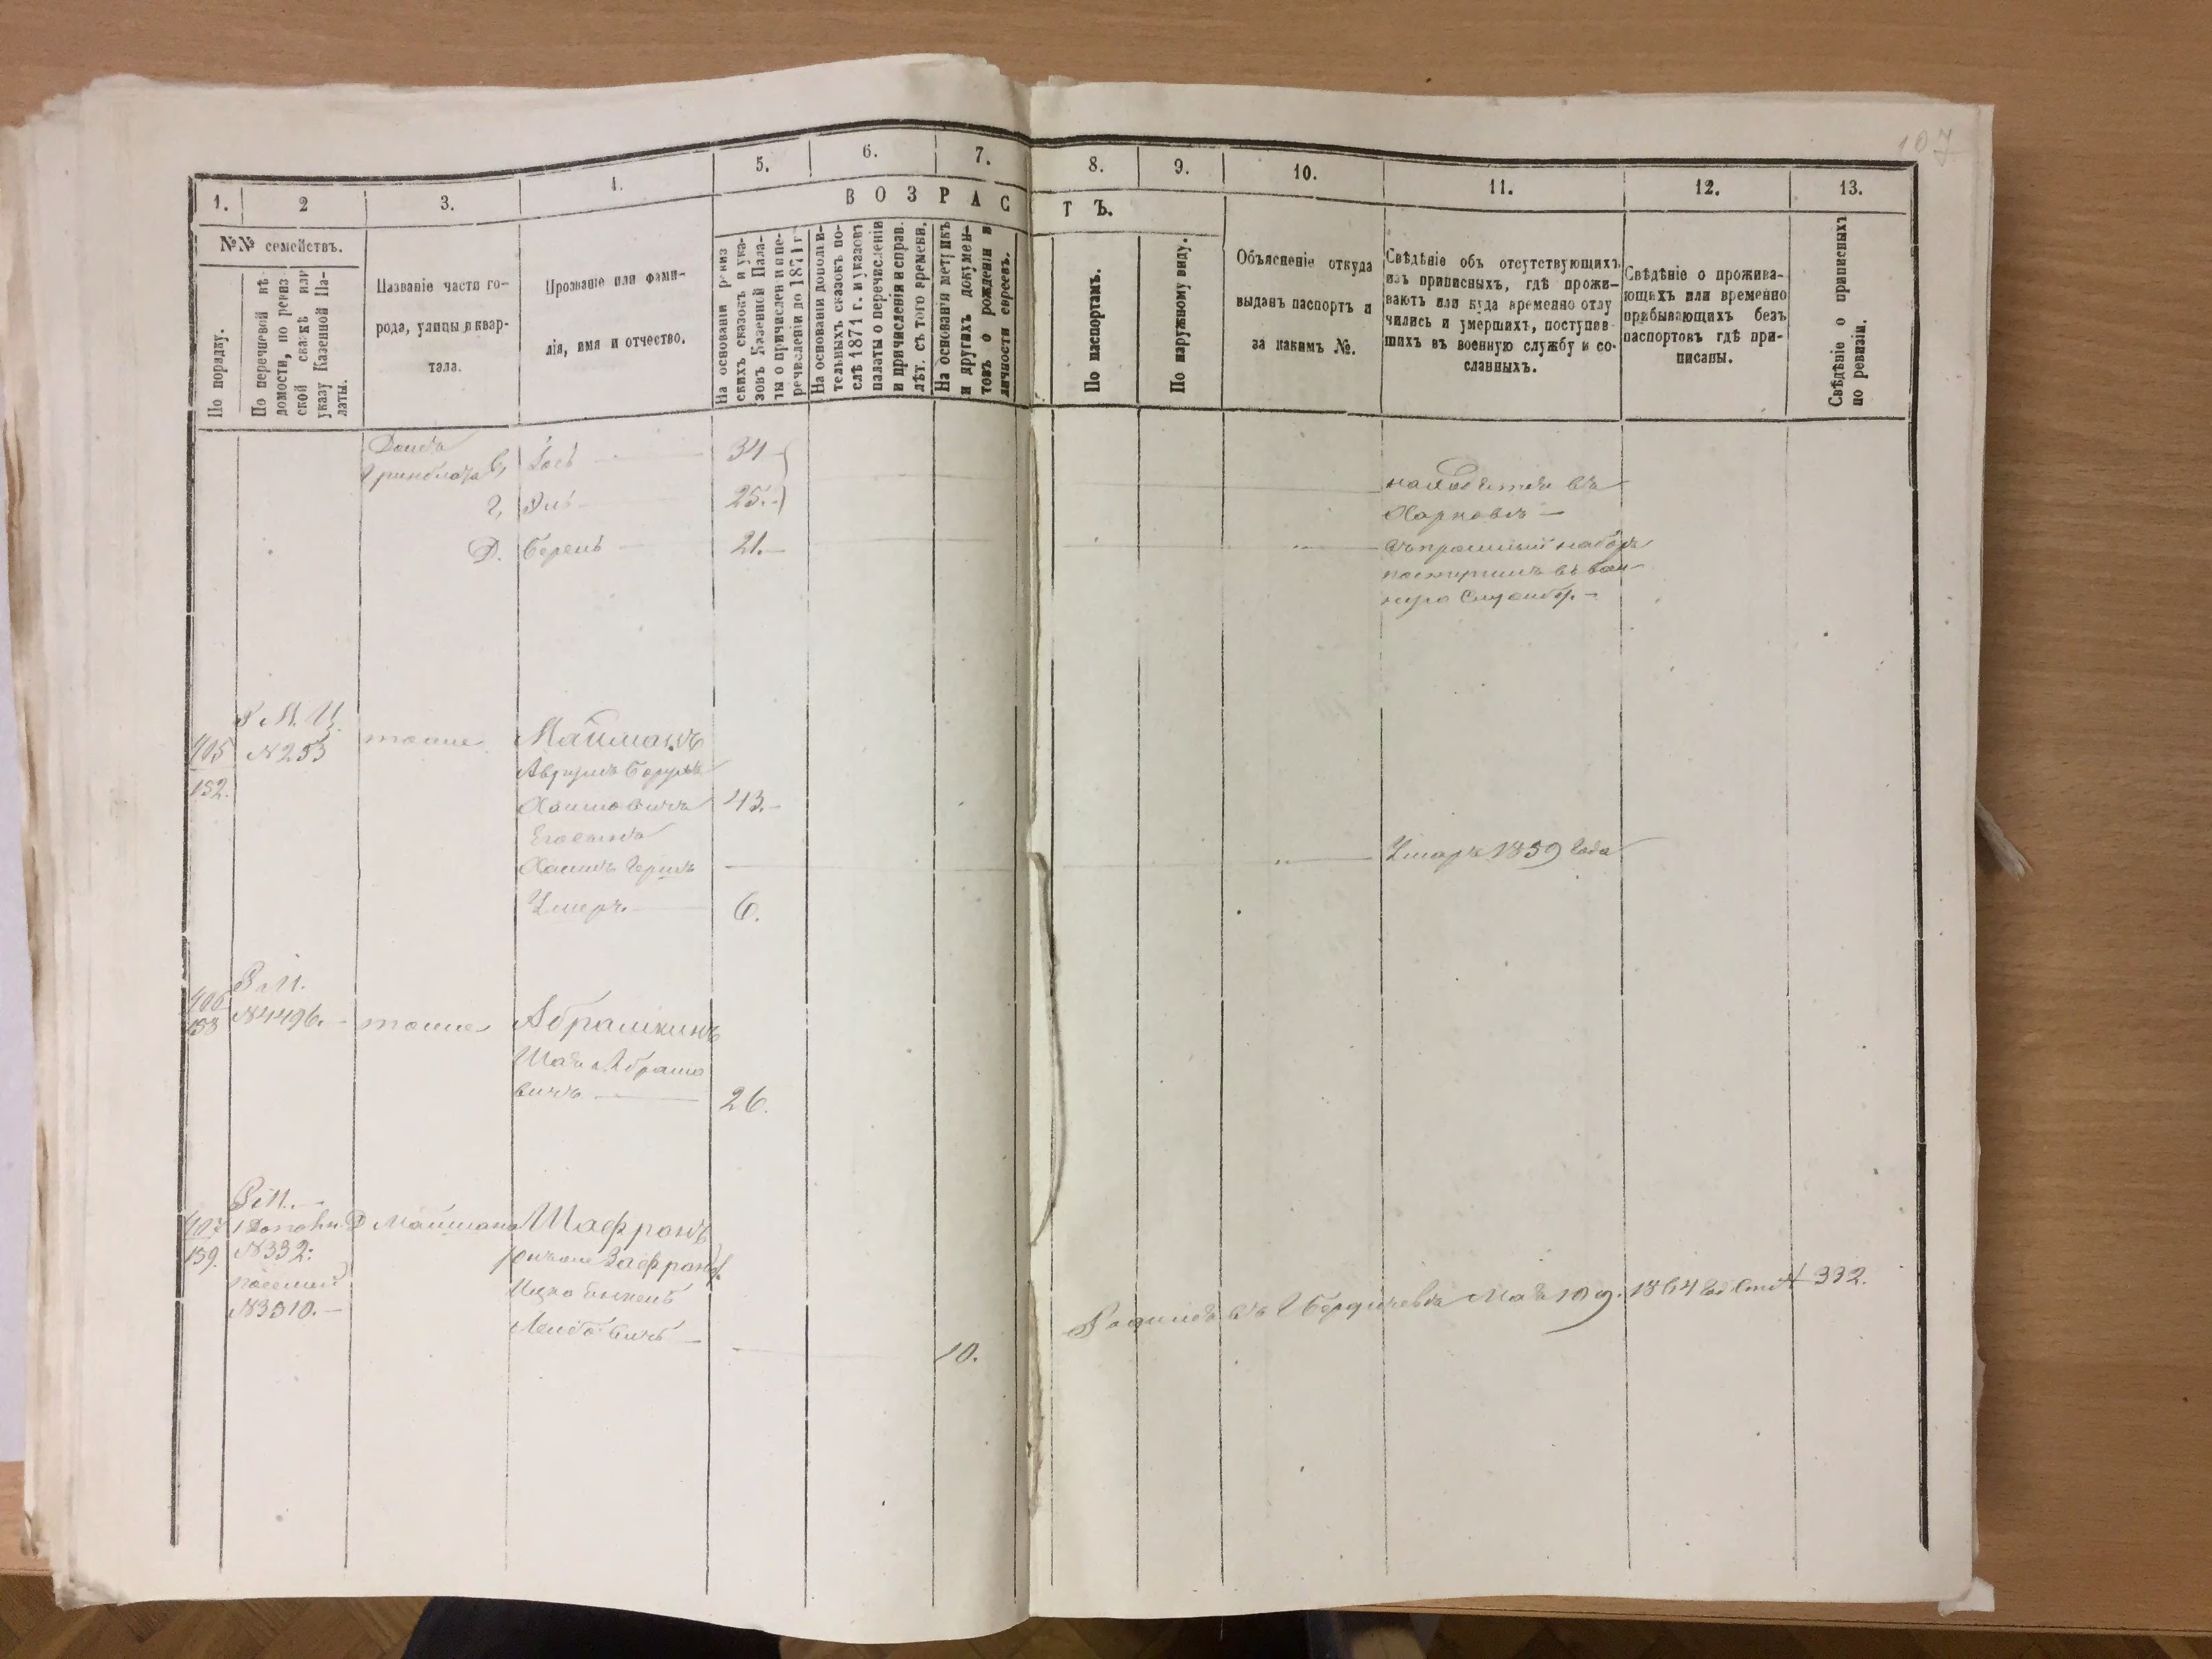 107
1.
2
3.
4.
5.
6.
7.
8.
9.
10.
11.
12.
13.
В О З Р А С Т Ъ.
№№ семействъ.
По порядку.
По перечневой вѣ-
домости, по ревиз
ской сказкѣ или
указу Казенной Па-
латы.
Названіе части го-
рода, улицы и квар-
тала.
Прозваніе или фами-
лія, имя и отчество.
На основаніи ревиз
скихъ сказокъ и ука-
зовъ Казенной Пала-
ты о причислен и пе-
речисленіи по 1871 г
На основаніи дополни-
тельныхъ сказокъ по-
слѣ 1871 г. и указовъ
палаты о перечисленіи
и причисленія и справ.
лѣт. съ того времени.
На основанія метрикъ
и другихъ докумен-
товъ о рожденіи и
личности евреевъ.
По паспортамъ.
По наружному виду.
Объясненіе откуда
выданъ паспортъ и
за какимъ №.
Свѣдѣніе объ отсутствующихъ
изъ приписныхъ, гдѣ прожи-
ваютъ или куда временно отлу
чились и умершихъ, поступив-
шихъ въ военную службу и со-
сланныхъ.
Свѣдѣніе о прожива-
ющихъ или временно
прибывающихъ безъ
паспортовъ гдѣ при-
писаны.
Свѣдѣніе о приписныхъ
по ревизіи.
Домъ
34
25.
находится въ
Харковѣ
Д. Берель 21.
въ прошлый наборъ
поступилъ въ воен-
ную службу.
405
152.
№ 253
тоже
Майманъ
Аврумъ Борухъ
Хаимовичъ 43.
Его сынъ
Хаимъ Гершъ
Умеръ 6.
Умеръ 1859 года
406
158
Р М.
№ 4496.
тоже
Абрашкинъ
Абрамо
вичъ 26.
407
159.
Р М.
1 Дополн.
№ 332:
№ 3510.
Д Маймана
Шафранъ
Зафранъ
Ицко
Лейбовичъ
10.
Родился въ г Бердичевѣ Мая 10 д. 1864 № 332.